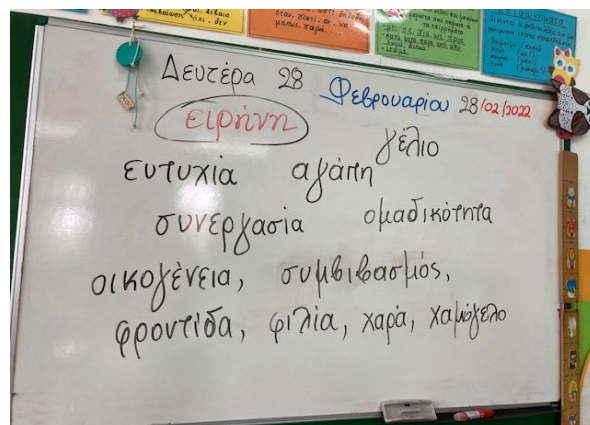 Δευτέρα 28 Φεβρουαρίου 28/02/2022
ειρήνη
γέλιο
ευτυχία αγάπη
συνεργασία ομαδικότητα
οικογένεια, συμβιβασμός,
φροντίδα, φιλία, χαρά, χαμόγελο